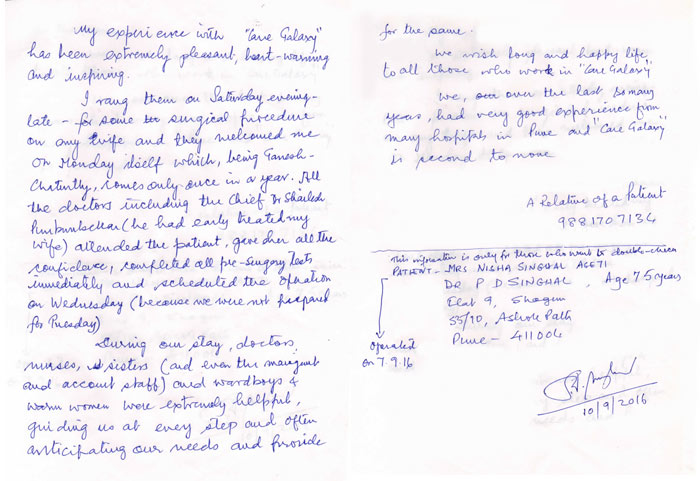 My experience with "Care Galaxy"
has been extremely pleasant, heart-warming
and inspiring.
I rang them on Saturday evening-
late - for some surgical procedure
on my wife and they welcomed me
on Monday itself which, being Ganesh-
Chaturthy, comes only once in a year. All
the doctors including the Chief Dr Shailesh
(he had early treated my
wife) attended the patient, gave her all the
confidence, completed all pre-surgery tests
immediately and scheduled the operation
on Wednesday (because we were not prepared
for Tuesday)
During our stay, doctors,
nurses, sisters (and even the management
and account staff) and wardboys &
women were extremely helpful,
guiding us at every step and often
anticipating our needs and provide
for the same.
We wish long and happy life
to all those who work in "Care Galaxy".
We, over the last so many
years, had very good experience from
many hospitals in Pune and "Care Galaxy"
is second to none
A Relative of a Patient
9881707134
This information is only for those who want to double-check
PATIENT - MRS NISHA SINGHAL AGE 71
DR P D SINGHAL, Age 75 years
Flat 9, Shagun
55/90, Ashok Path
Pune - 411004
Operated
on 7.9.16
10/9/2016